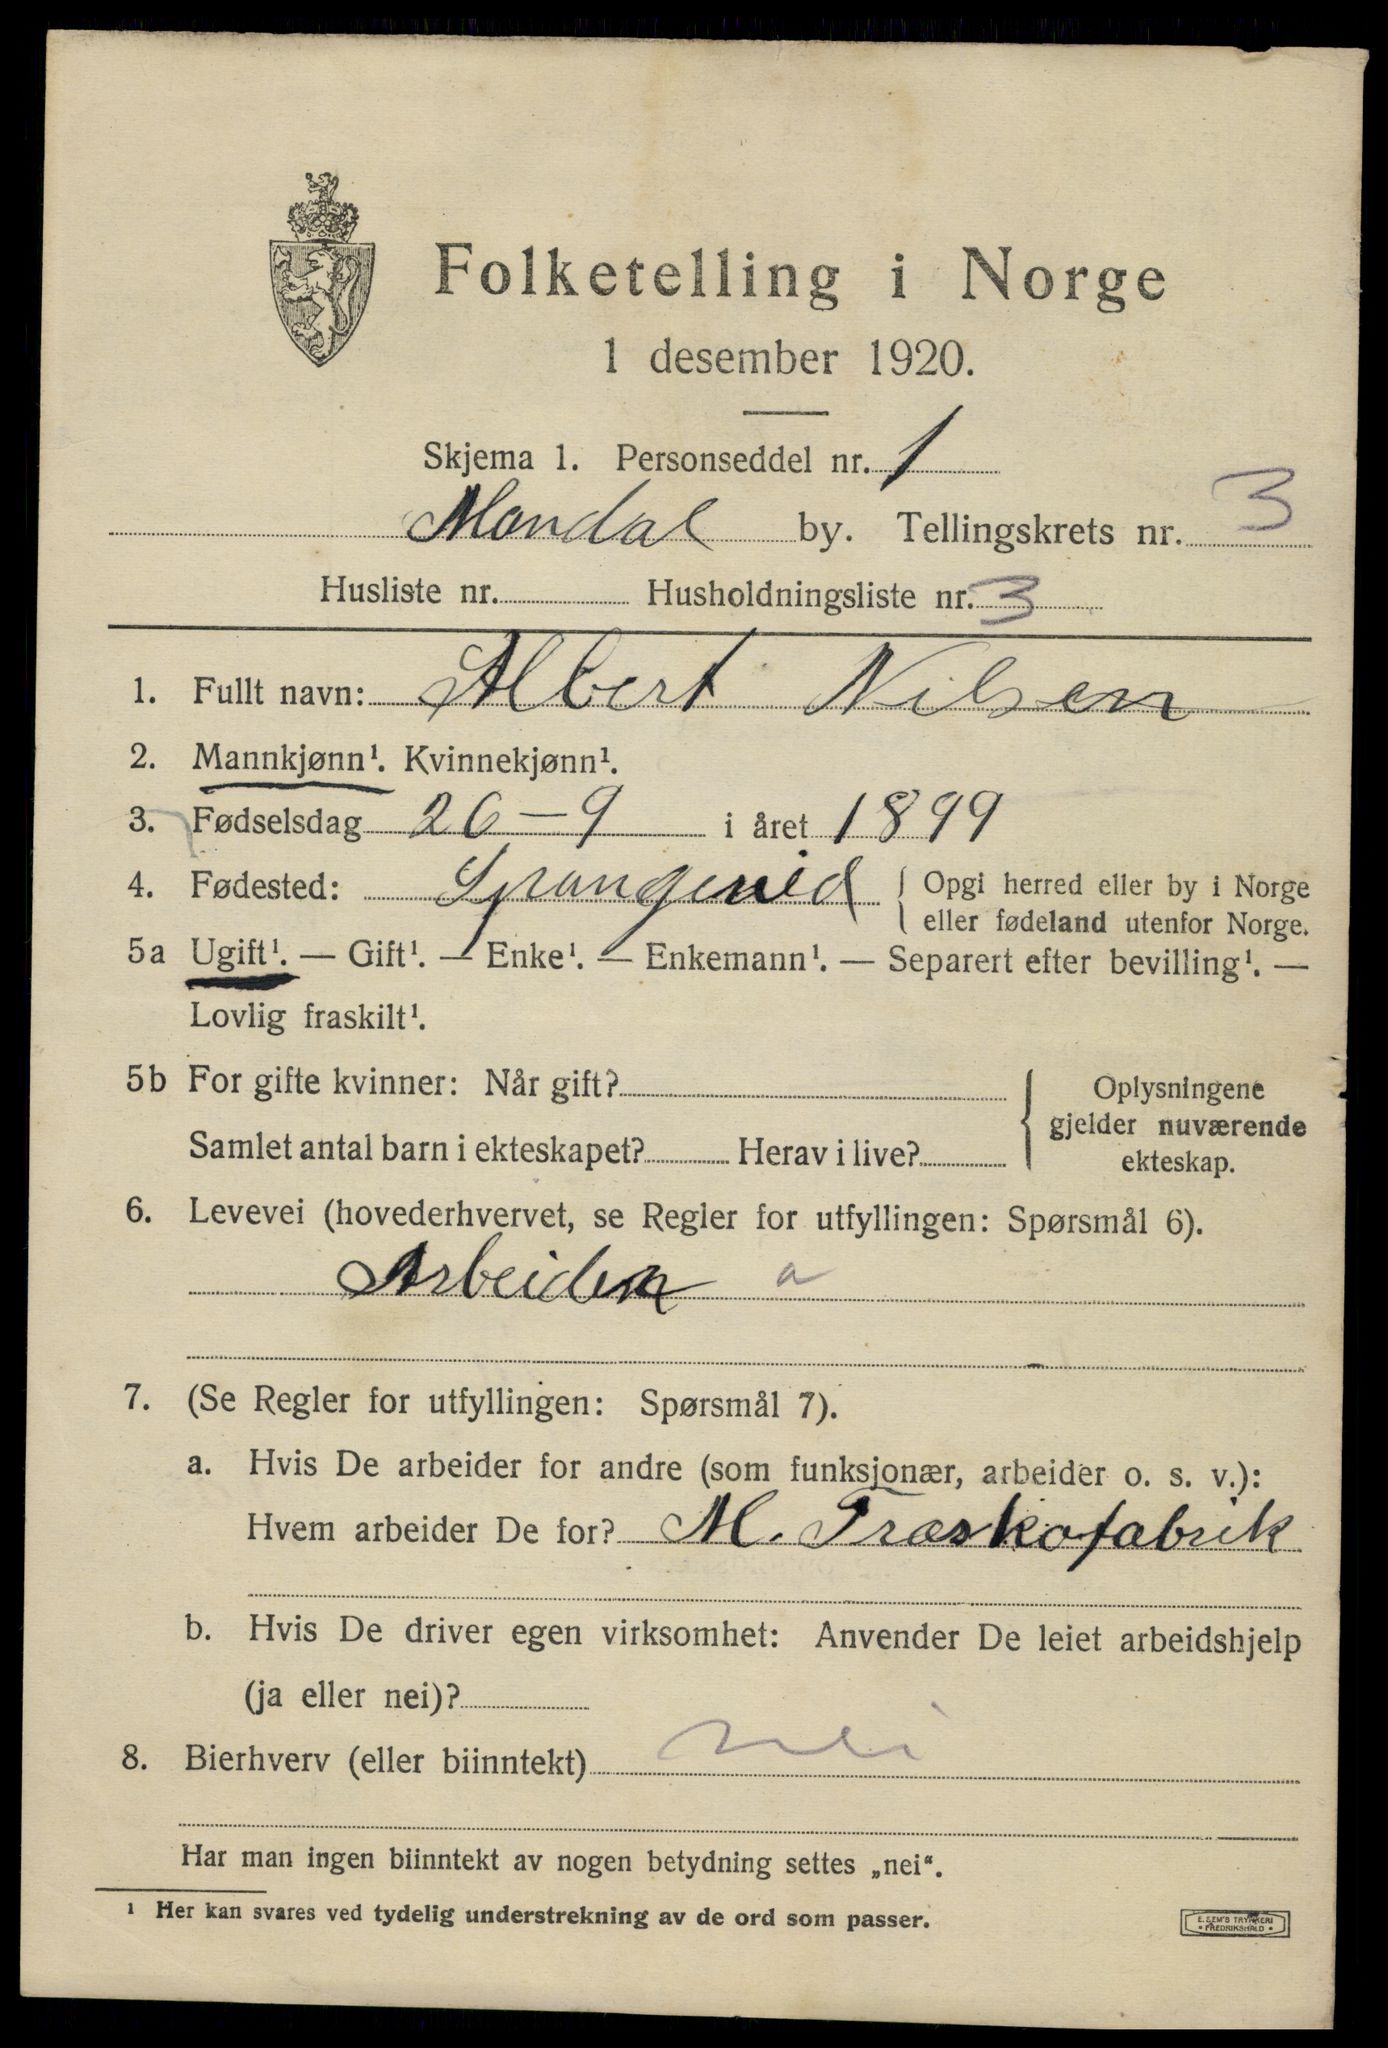 Folketelling i Norge
1 desember 1920.
Skjema 1. Personseddel nr. 1
Mandal by. Tellingskrets nr. 3
Husliste nr. Husholdningsliste nr. 3
1. Fullt navn: Albert Nilsen
2. Mannkjønn¹. Kvinnekjønn¹.
3. Fødselsdag 26-9 i året 1899
4. Fødested: Spangereid Opgi herred eller by i Norge
eller fødeland utenfor Norge.
5a Ugift¹. — Gift¹. — Enke¹. — Enkemann¹. — Separert efter bevilling¹. —
Lovlig fraskilt¹.
5b For gifte kvinner: Når gift? Oplysningene
gjelder nuværende
Samlet antal barn i ekteskapet? Herav i live? ekteskap.
6. Levevei (hovederhvervet, se Regler for utfyllingen: Spørsmål 6).
Arbeider a
7. (Se Regler for utfyllingen: Spørsmål 7).
a. Hvis De arbeider for andre (som funksjonær, arbeider o. s. v.):
Hvem arbeider De for? M. Træskofabrik
b. Hvis De driver egen virksomhet: Anvender De leiet arbeidshjelp
(ja eller nei)?
8. Bierhverv (eller biinntekt) nei
Har man ingen biinntekt av nogen betydning settes „nei".
¹ Her kan svares ved tydelig understrekning av de ord som passer.
E. SEM'S TRYKKERI
• FREDRIKSHALD •